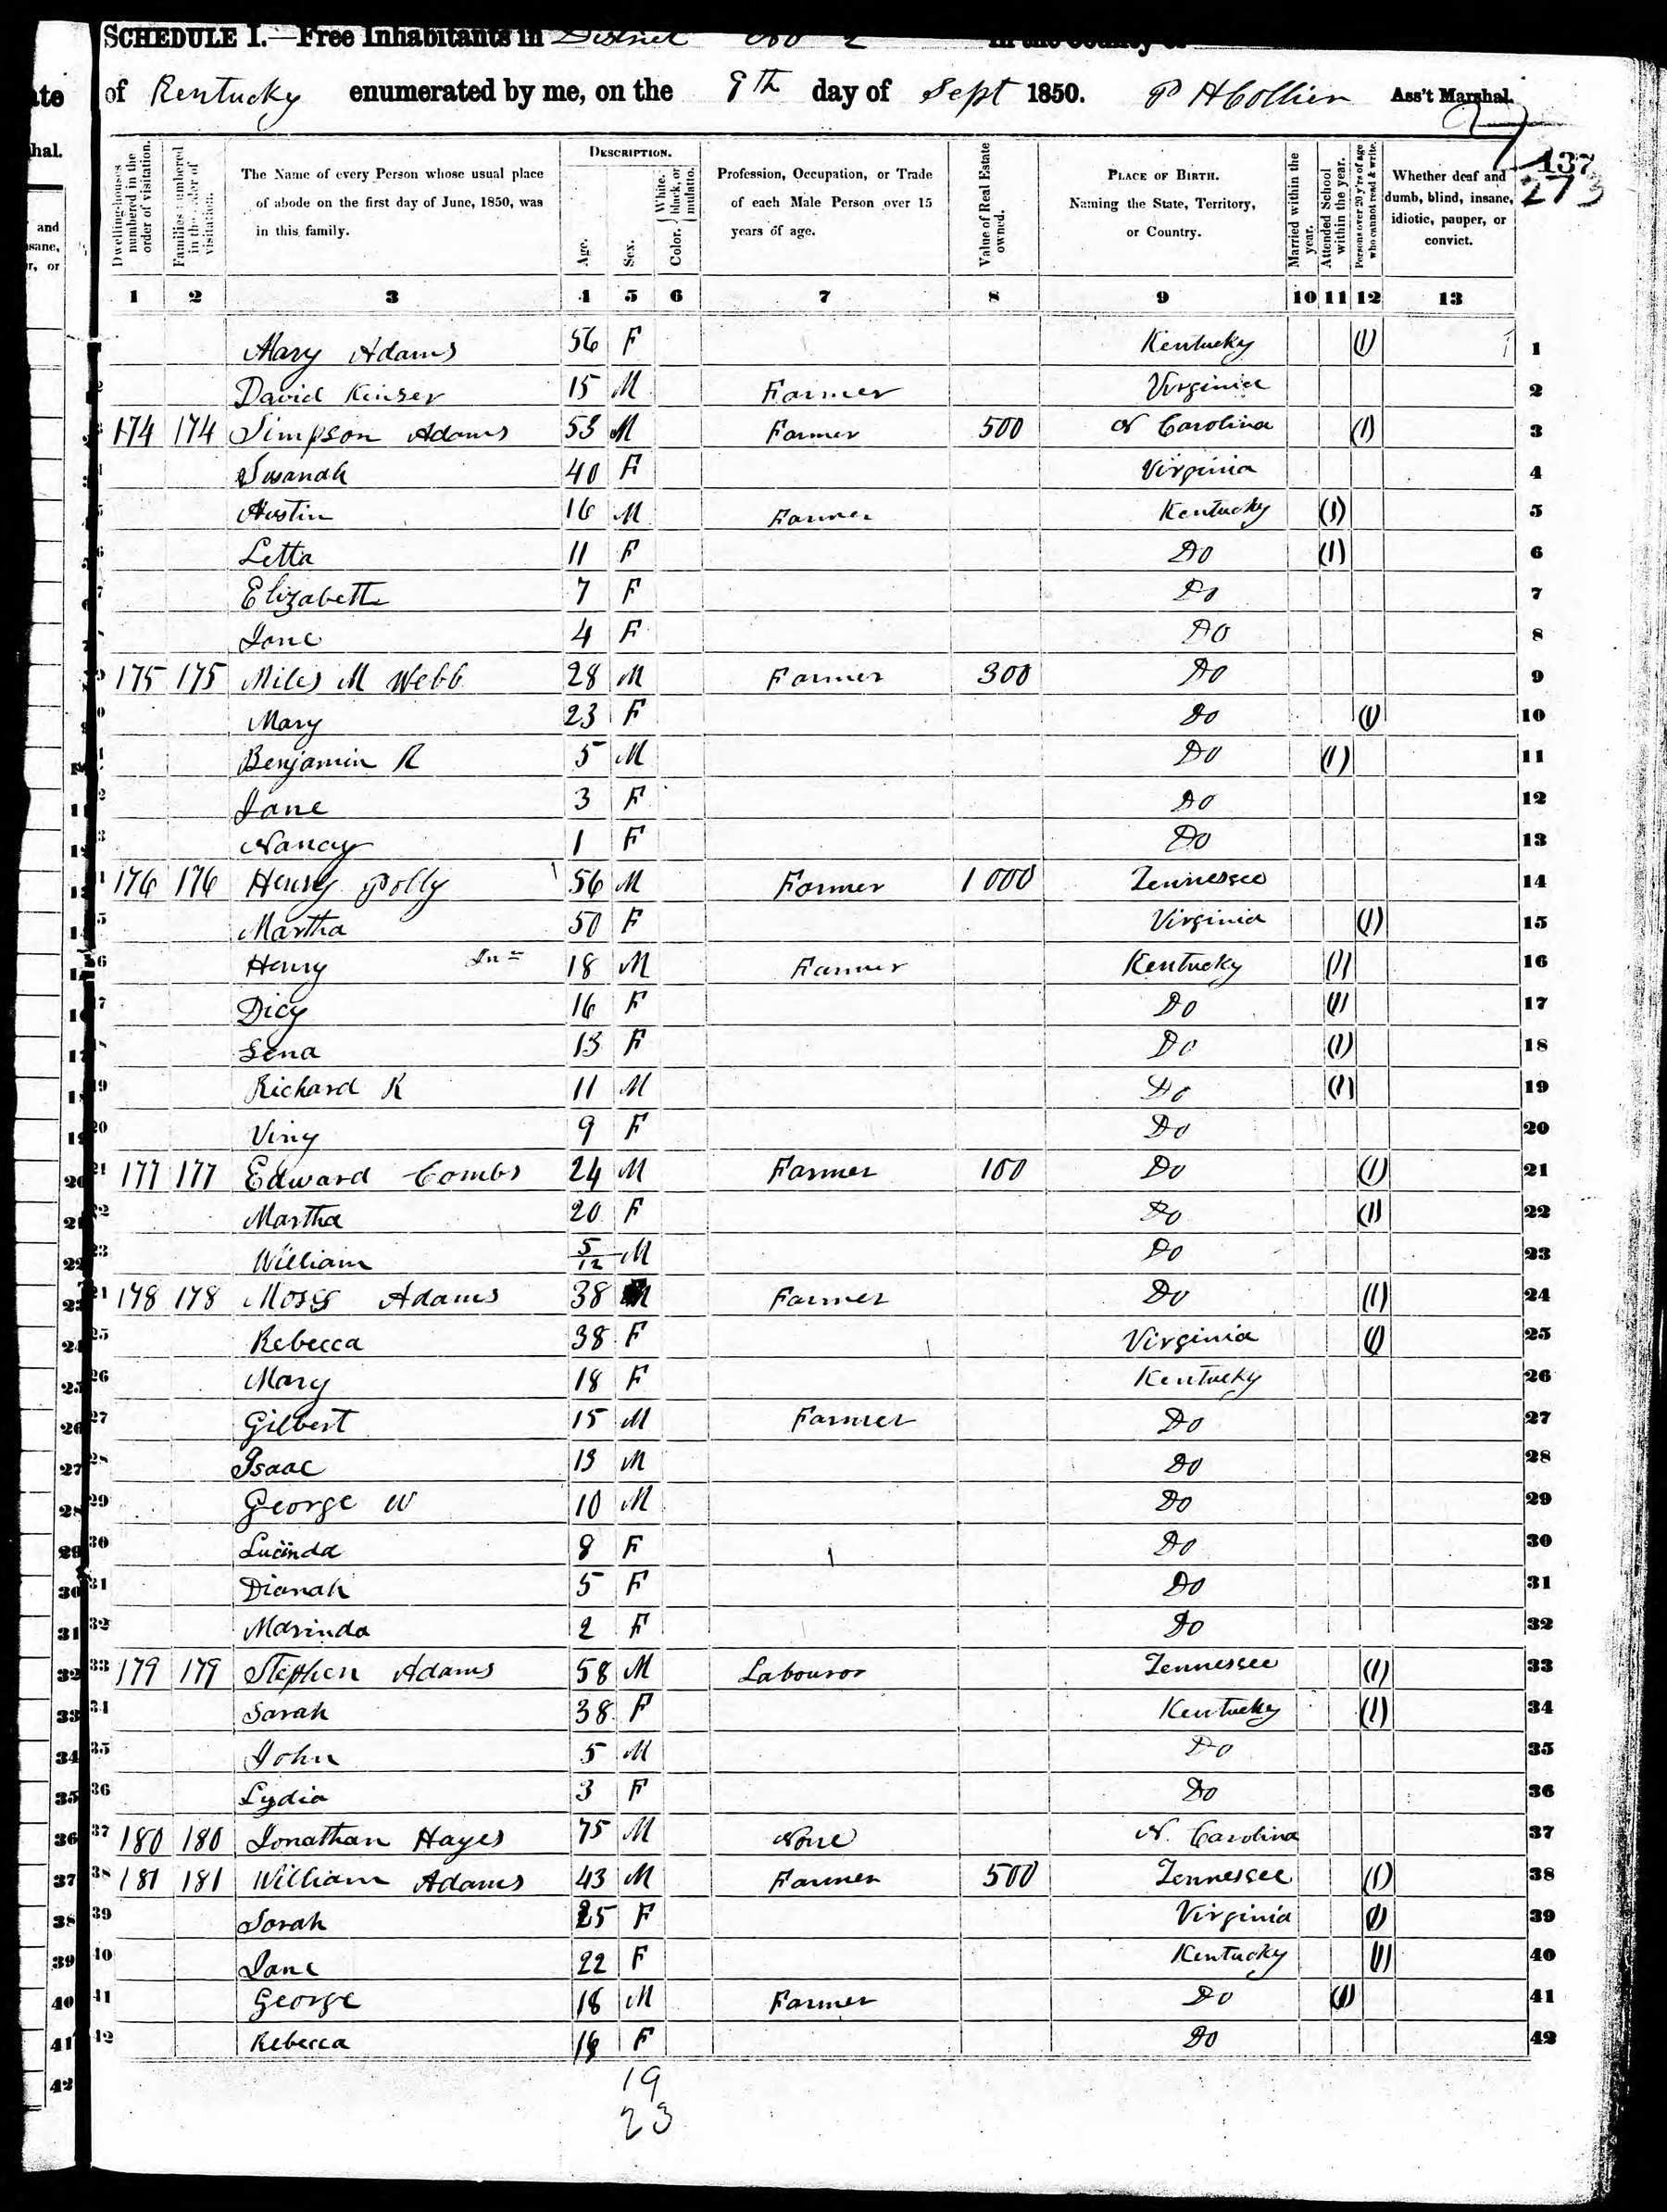 SCHEDULE I.—Free Inhabitants in District No 2 in the County of
of Kentucky enumerated by me, on the 9th day of Sept 1850. P H Collier Ass't Marshal.
137
273
Dwelling-houses numbered in the order of visitation. Families numbered in the order of visitation. The Name of every Person whose usual place of abode on the first day of June, 1850, was in this family. DESCRIPTION. Age. Sex. Color. White, black, or mulatto. Profession, Occupation, or Trade of each Male Person over 15 years of age. Value of Real Estate owned. PLACE OF BIRTH. Naming the State, Territory, or Country. Married within the year. Attended School within the year. Persons over 20 y'rs of age who cannot read & write. Whether deaf and dumb, blind, insane, idiotic, pauper, or convict.
1 2 3 4 5 6 7 8 9 10 11 12 13
Mary Adams 56 F Kentucky (1) 1
David Kinser 15 M Farmer Virginia 2
174 174 Simpson Adams 53 M Farmer 500 N Carolina (1) 3
Susanah 40 F Virginia 4
Austin 16 M Farmer Kentucky (1) 5
Letta 11 F Do (1) 6
Elizabeth 7 F Do 7
Jane 4 F Do 8
175 175 Miles M Webb 28 M Farmer 300 Do 9
Mary 23 F Do (1) 10
Benjamin R 5 M Do (1) 11
Jane 3 F Do 12
Nancy 1 F Do 13
176 176 Henry Polly 56 M Farmer 1000 Tennessee 14
Martha 50 F Virginia (1) 15
Henry Jnr 18 M Farmer Kentucky (1) 16
Dicy 16 F Do (1) 17
Lena 13 F Do (1) 18
Richard K 11 M Do (1) 19
Viny 9 F Do 20
177 177 Edward Combs 24 M Farmer 100 Do (1) 21
Martha 20 F Do (1) 22
William 5/12 M Do 23
178 178 Moses Adams 38 M Farmer Do (1) 24
Rebecca 38 F Virginia (1) 25
Mary 18 F Kentucky 26
Gilbert 15 M Farmer Do 27
Isaac 13 M Do 28
George W 10 M Do 29
Lucinda 8 F Do 30
Dianah 5 F Do 31
Marinda 2 F Do 32
179 179 Stephen Adams 58 M Labouror Tennessee (1) 33
Sarah 38 F Kentucky (1) 34
John 5 M Do 35
Lydia 3 F Do 36
180 180 Jonathan Hayes 75 M None N. Carolina 37
181 181 William Adams 43 M Farmer 500 Tennessee (1) 38
Sarah F Virginia (1) 39
Jane 22 F Kentucky (1) 40
George 18 M Farmer Do (1) 41
Rebecca F Do 42
19
23